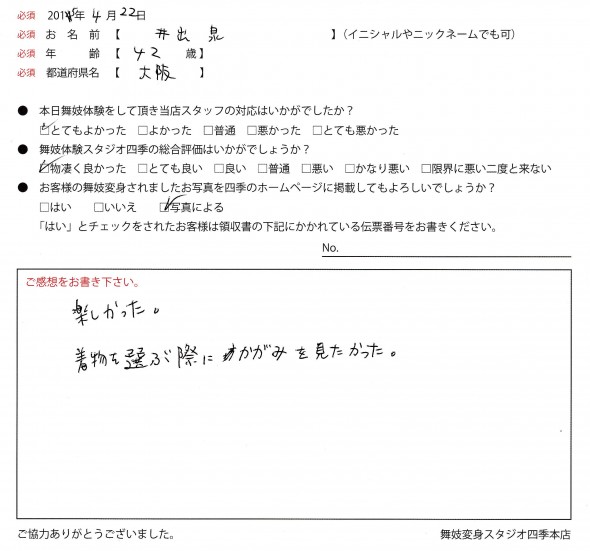 必須 2015年 4月 22日
必須 お名前【 井出 泉 】（イニシャルやニックネームでも可）
必須 年齢【 42 歳】
必須 都道府県名【 大阪 】
● 本日舞妓体験をして頂き当店スタッフの対応はいかがでしたか？
☑とてもよかった □よかった □普通 □悪かった □とても悪かった
● 舞妓体験スタジオ四季の総合評価はいかがでしょうか？
☑物凄く良かった □とても良い □良い □普通 □悪い □かなり悪い □限界に悪い二度と来ない
● お客様の舞妓変身されましたお写真を四季のホームページに掲載してもよろしいでしょうか？
□はい □いいえ ☑写真による
「はい」とチェックをされたお客様は領収書の下記にかかれている伝票番号をお書きください。
No.
ご感想をお書き下さい。
楽しかった。
着物を選ぶ際にかがみを見たかった。
ご協力ありがとうございました。 舞妓変身スタジオ四季本店